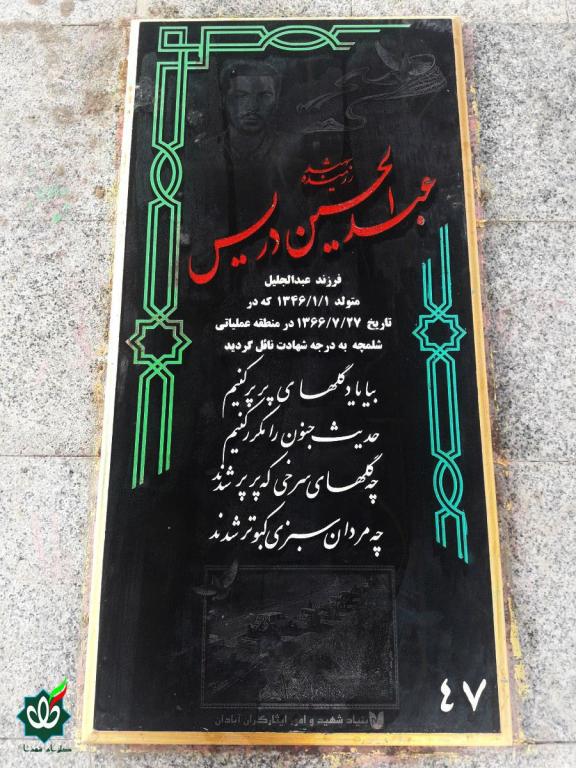 شهید
رزمنده
عبدالحسین دریس
فرزند عبدالجلیل
متولد ۱۳۴۶/۱/۱ که در
تاریخ ۱۳۶۶/۷/۲۷ در منطقه عملیاتی
شلمچه به درجه شهادت نائل گردید
بیا یاد گلهای پرپر کنیم
حدیث جنون را مکرر کنیم
چه گلهای سرخی که پرپر شدند
چه مردان سبزی کبوتر شدند
بنیاد شهید و امور ایثارگران آبادان
۴۷